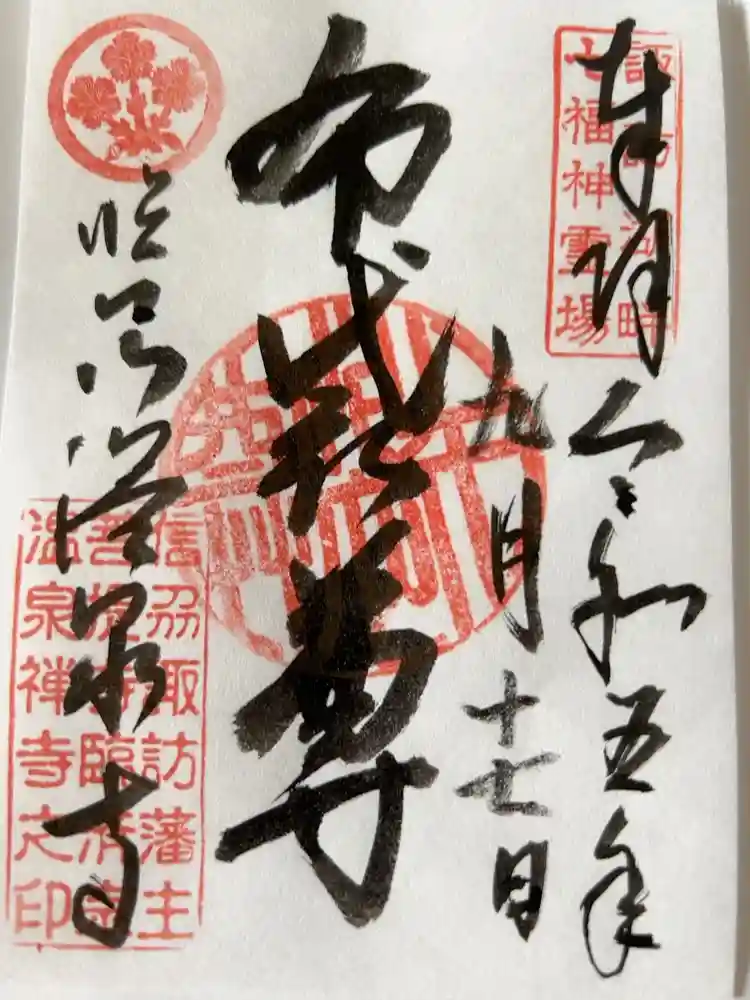 奉拝
諏訪湖畔
七福神霊場
令和五年
九月十七日
布袋尊
温泉寺
信刕諏訪藩主
菩提寺臨済宗
温泉禅寺之印